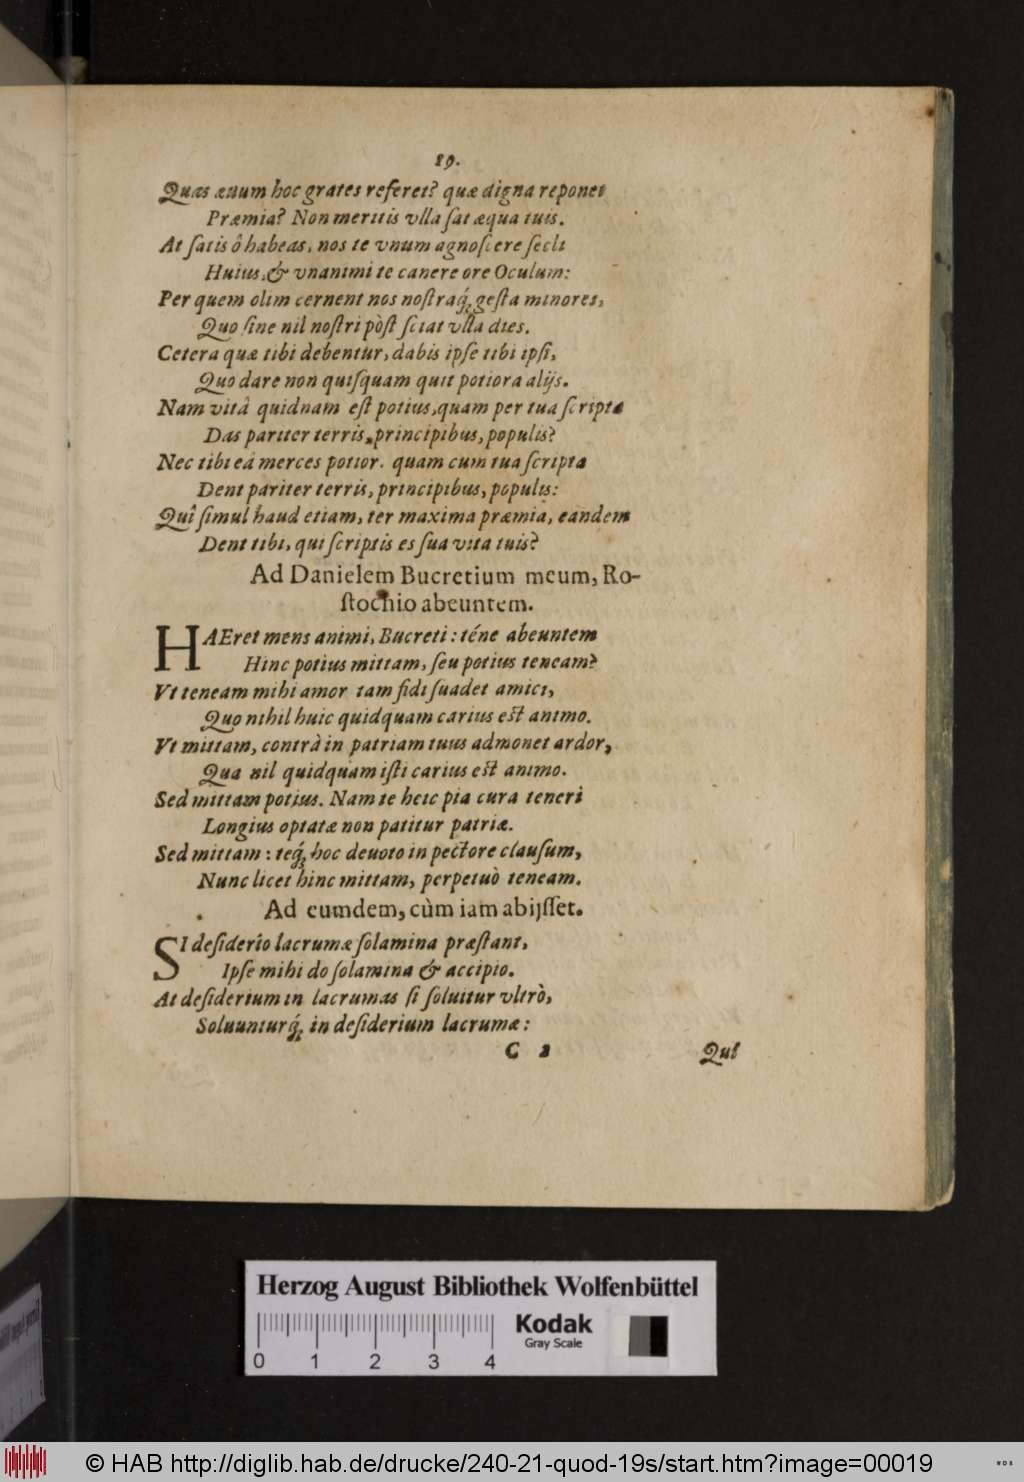 19.
Quas æuum hoc grates referet? quæ digna reponet
Præmia? Non meritis vlla sat æqua tuis.
At satis ô habeas, nos te vnum agnoscere secli
Huius, & vnanimi te canere ore Oculum:
Per quem olim cernent nos nostraq́; gesta minores,
Quo sine nil nostri pòst sciat vlla dies.
Cetera quæ tibi debentur, dabis ipse tibi ipsi,
Quo dare non quisquam quit potiora alijs.
Nam vitâ quidnam est potius, quam per tua scripta
Das pariter terris, principibus, populis?
Nec tibi eâ merces potior. quam cum tua scripta
Dent pariter terris, principibus, populis:
Quî simul haud etiam, ter maxima præmia, eandem
Dent tibi, qui scriptis es sua vita tuis?
Ad Danielem Bucretium meum, Ro-
stochio abeuntem.
HAEret mens animi, Bucreti: téne abeuntem
Hinc potius mittam, seu potius teneam?
Vt teneam mihi amor tam fidi suadet amici,
Quo nihil huic quidquam carius est animo.
Vt mittam, contrà in patriam tuus admonet ardor,
Qua nil quidquam isti carius est animo.
Sed mittam potius. Nam te heic pia cura teneri
Longius optatæ non patitur patriæ.
Sed mittam: teq́; hoc deuoto in pectore clausum,
Nunc licet hinc mittam, perpetuò teneam.
Ad eumdem, cùm iam abijsset.
SI desiderio lacrumæ solamina præstant,
Ipse mihi do solamina & accipio.
At desiderium in lacrumas si soluitur vltrò,
Soluunturq́; in desiderium lacrumæ:
C 2 Qui
Herzog August Bibliothek Wolfenbüttel
Kodak
Gray Scale
0 1 2 3 4
© HAB http://diglib.hab.de/drucke/240-21-quod-19s/start.htm?image=00019